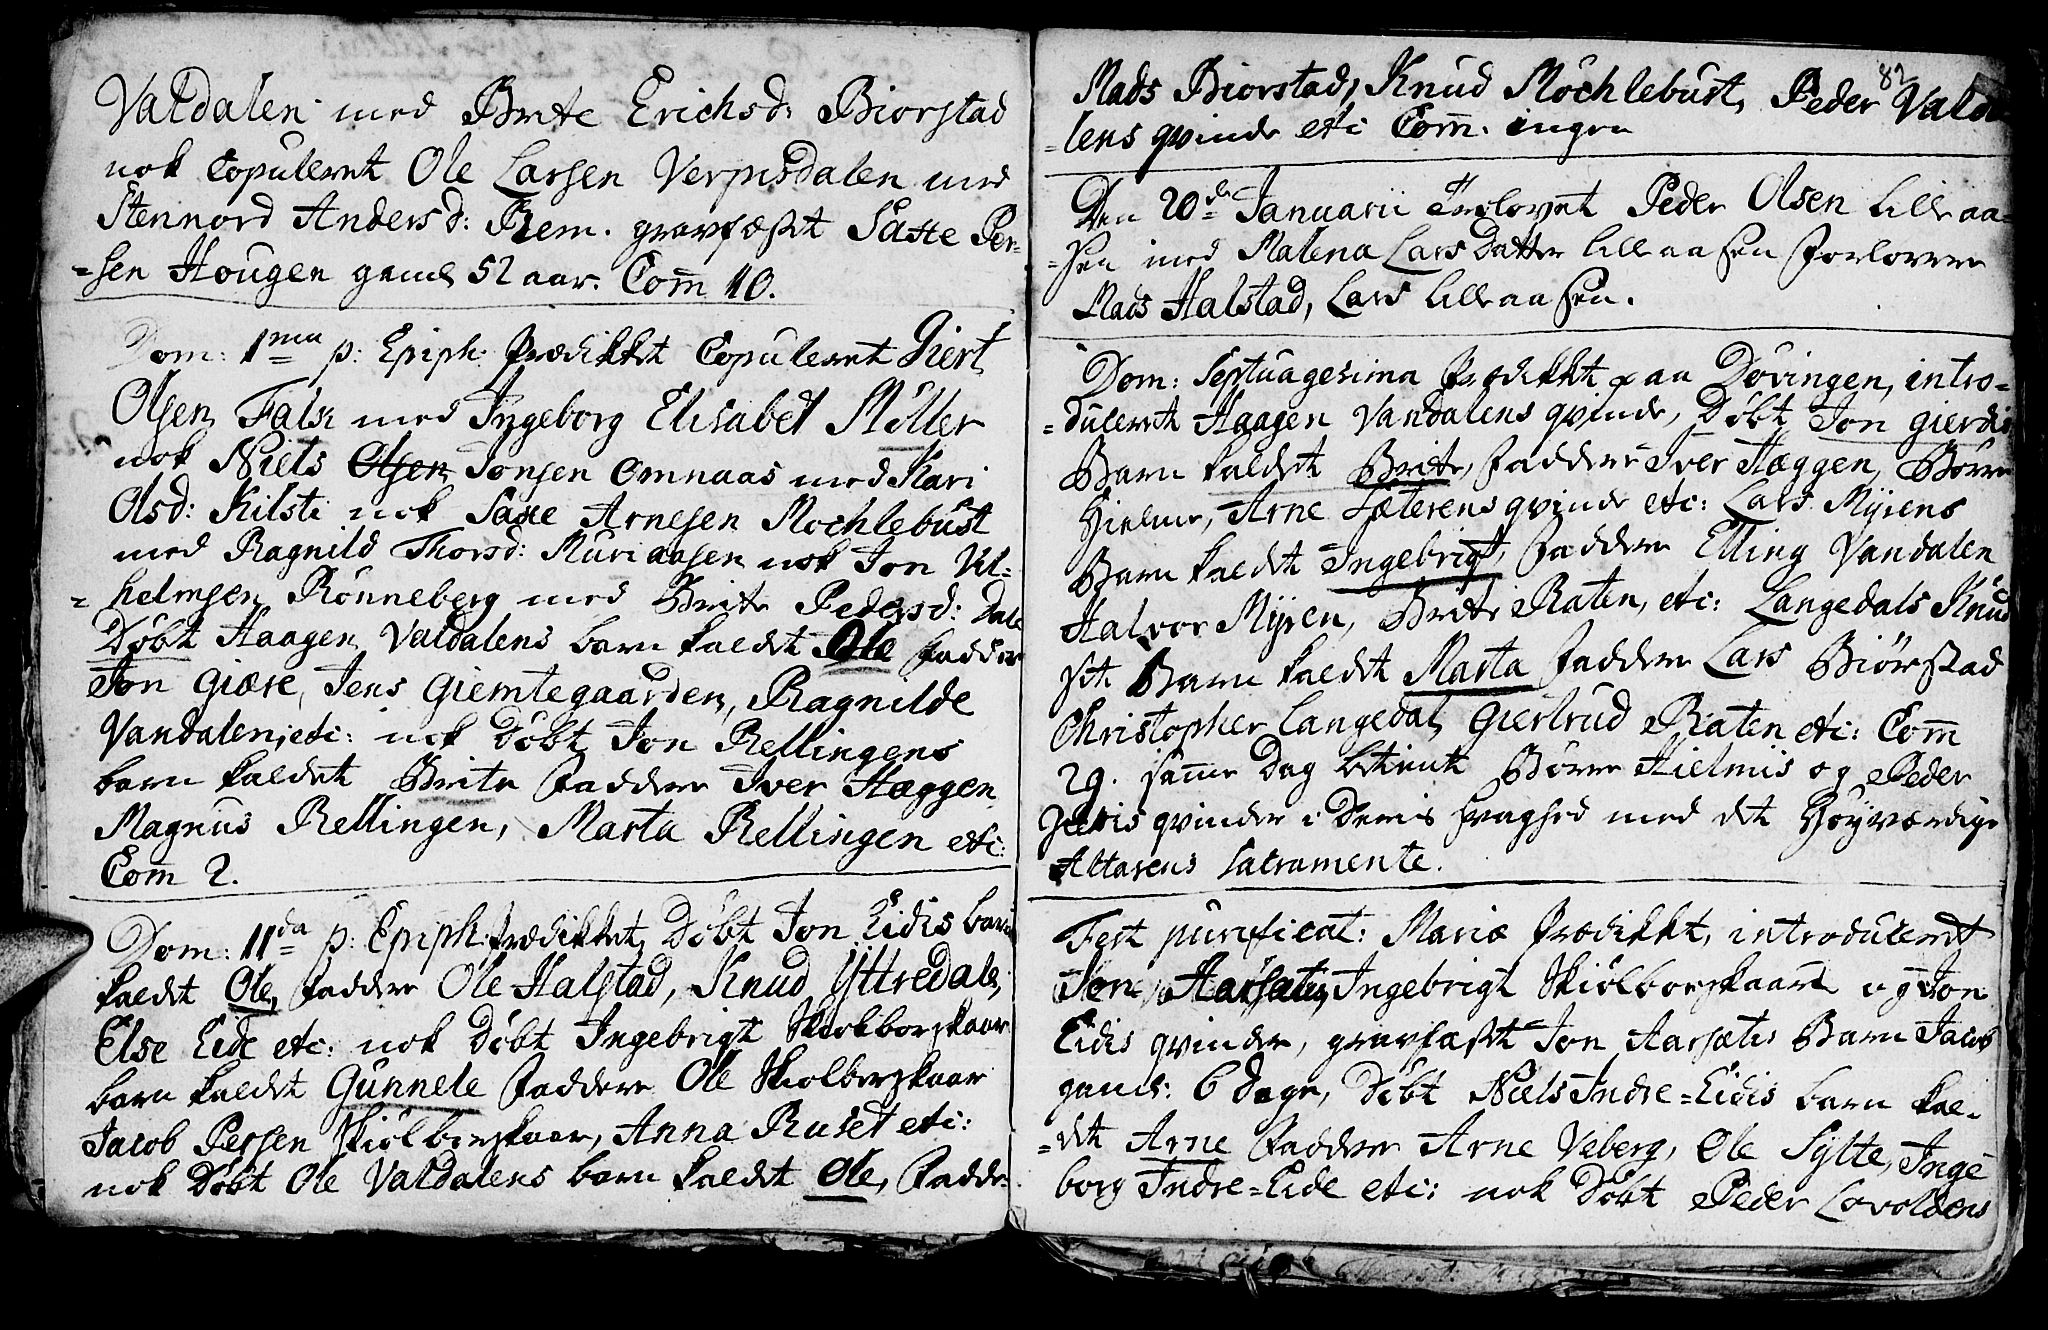 Valdalen med Brite Erichsd: Biorstad
nok Copuleret Ole Larsen Verpisdalen med
Stennord Andersd: Rem. gravfæst Saxe Per-
=sen Hougen gaml 52 aar. Com̄ 10.
Dom: 1ma p: Epiph: Prædikket Copuleret Giert
Olsen Falk med Ingeborg Elisabet Möller
nok Niels Olsen Jonsen Omnaas med Kari
Olsd: Kilsti nok Saxe Arnesen Mochlebust
med Ragnild Thorsd: Muriaasen nok Jon Vil-
=helmsen Rönneberg med Brite Pedersd: Dale
Döbt Haagen Valdalens barn kaldet Ole Fadder
Jon Giære, Jens Giemtegaarden, Ragnilde
Vandalen, etc: nok Döbt Jon Rellingens
barn kaldet Brite Faddere Iver Hæggen,
Magnus Rellingen, Marta Rellingen etc:
Com̄ 2.
Dom: 11da p: Epiph: Prædikket, Döbt Jon Eidis barn
kaldet Ole, Faddere Ole Halstad, Knud Yttredale,
Else Eide etc: nok Döbt Ingebrigt Skiolborgskaar
barn kaldet Gunnele Faddere Ole Skiolborgskaar
Jacob Persen Skiolborgskaar, Anna Ruset etc:
nok Döbt Ole Valdalens barn kaldet Ole, Fadde-
82
Mads Biorstad, Knud Mochlebust, Peder Valda
=lens qvinde etc Com̄. ingen
Den 20de Januarii Trolovet Peder Olsen Lilleaa-
=sen med Malena Lars Datter Lilleaasen Forlovere
Mads Halstad, Lars Lilleaasen.
Dom: Septuagesima Prædikket paa Dövingen, intro-
=duceret Haagen Vandalens qvinde, Döbt Jon Gierdis
Barn kaldet Brite, Faddere Iver Hæggen, Börre
Hielme, Arne Sæterens qvinde etc: Lars Myrens
Barn kaldet Ingebrigt, Faddere Elling Vandalen
Halvor Myren, Brite Raten, etc: Langedals Knud
Barn kaldet Marta Faddere Lars Biörstad
Christopher Langedal, Giertrud Raten etc: Com̄
29. samme Dag betient Börre Hielmis og Peder
qvinder i Deris svaghed med det Höyværdige
Altarens Sacramente.
Fest purificat: Mariæ Prædikket, introduceret
Jon Aarsætis, Ingebrigt Skiolborgskaars og Jon
Eidis qvinder, gravfæst Jon Aarsætis Barn Jacob
gaml: 6 dage, Döbt Niels Indre=Eidis barn kal-
=det Arne Faddere Arne Veberg, Ole Sylte, Inge
borg Indre=Eide etc: nok Döbt Peder Lovoldens